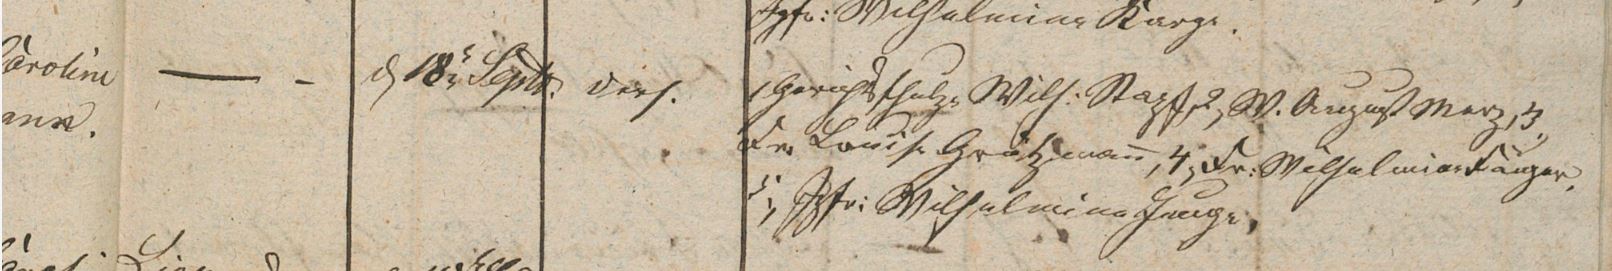 Jgfr: Wilhelmine Karge.
Caroline — - d 18t Septb. ders. 1, Gerichtsschulze Wilh: Stapf, 2, W. August Merz, 3,
ann. Fr. Louise Grützmann, 4, Fr: Wilhelmine Fänger,
5, Jgfr: Wilhelmine Junge.